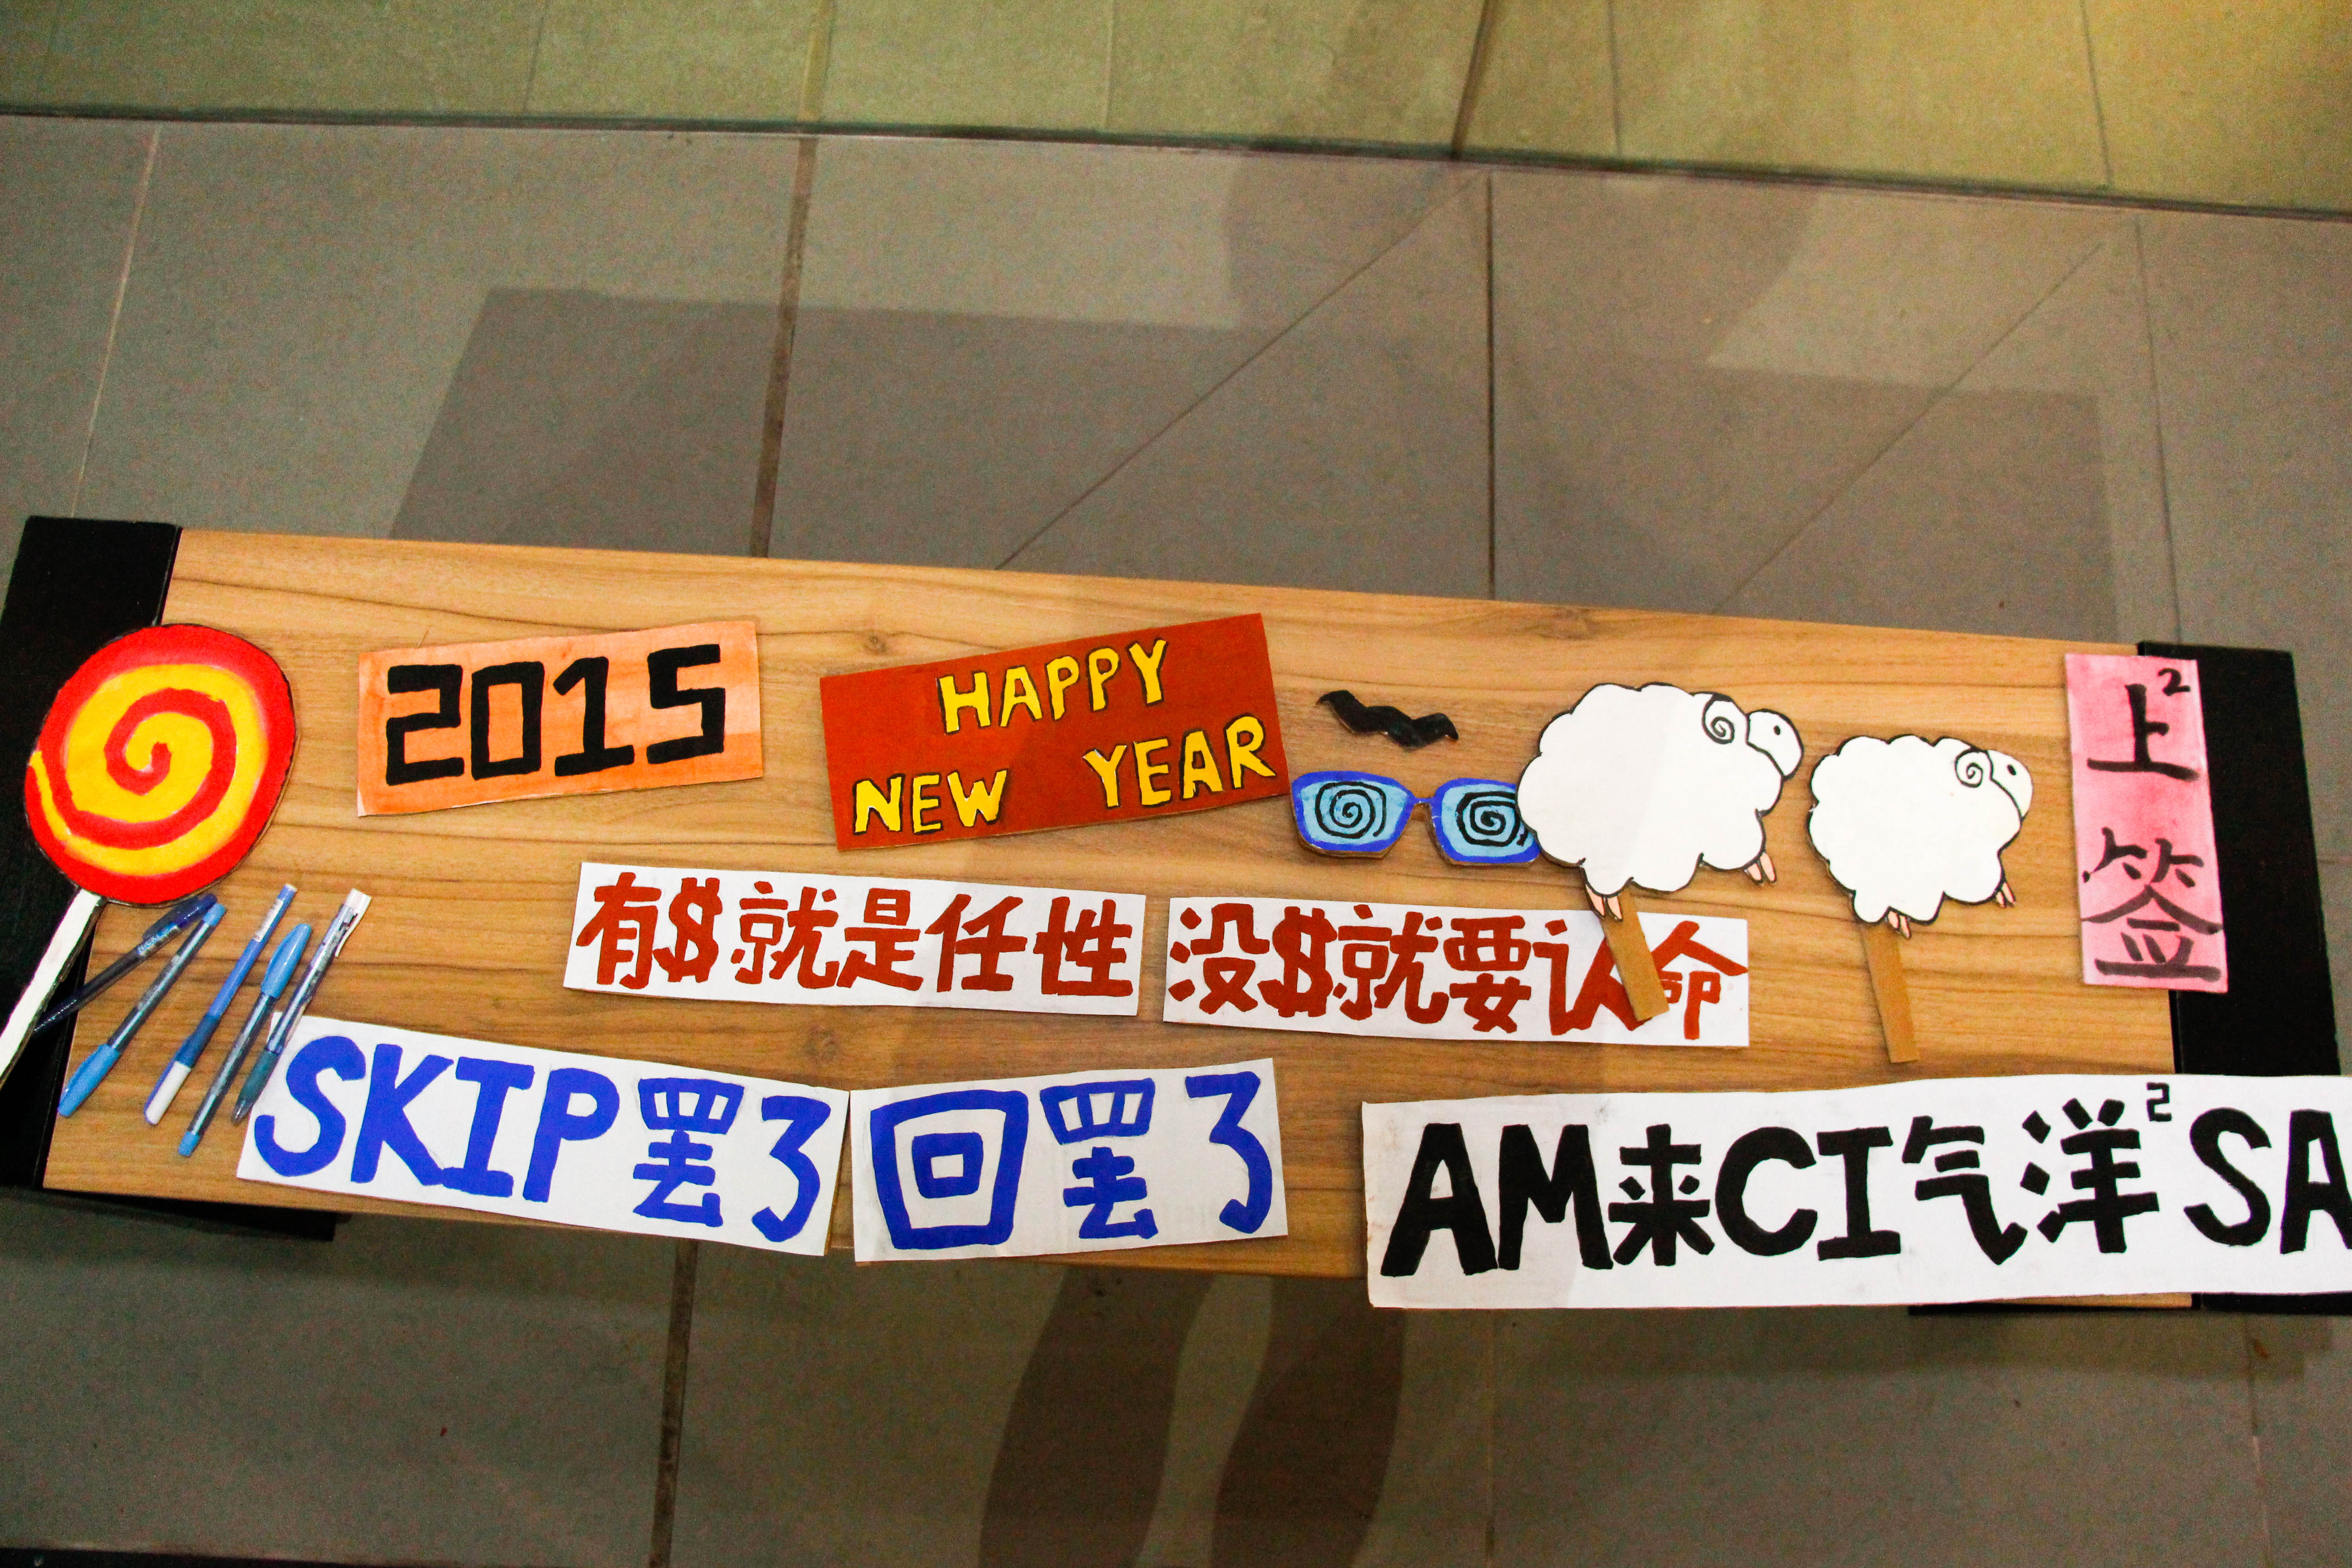 2015
HAPPY
NEW YEAR
上²
签
有$就是任性
没$就要认命
SKIP罢了
回罢了
AM来CI气洋²SA